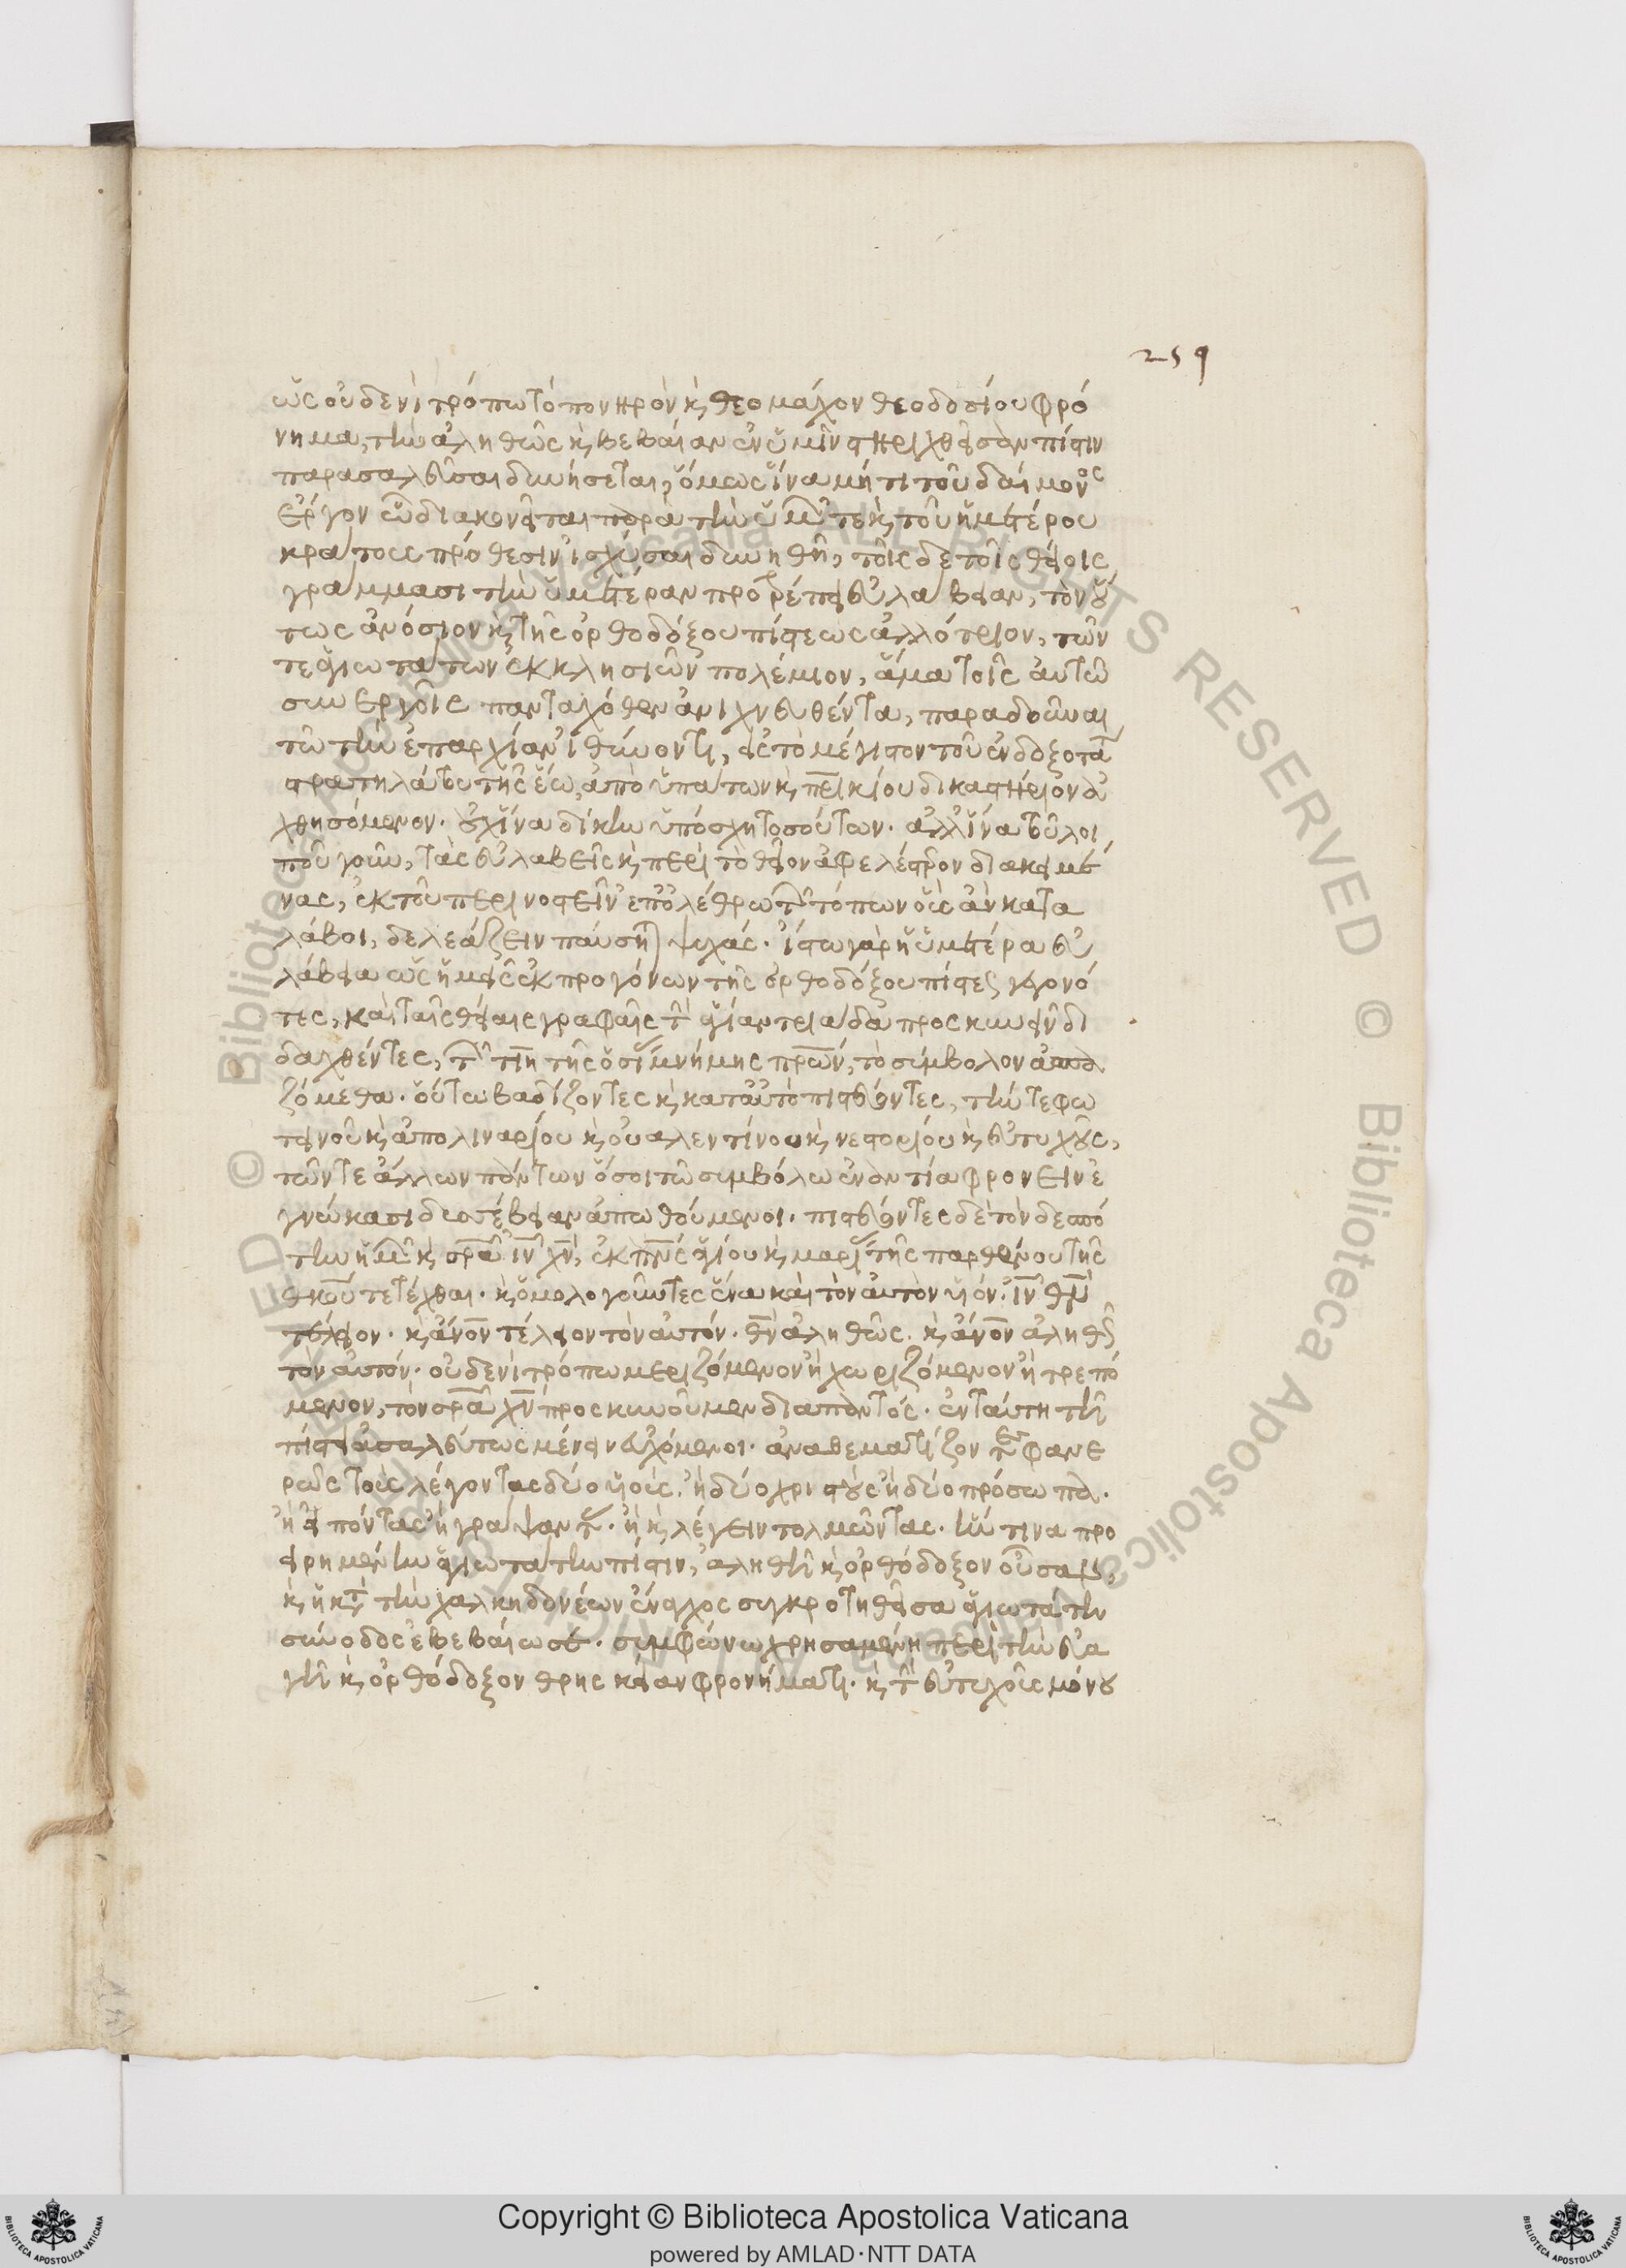 259
ὡς οὐδενὶ τρόπω τὸ πονηρὸν κ̀ θεομάχον θεοδοσίου φρό
νημα, τὴν ἀληθῶς κ̀ βεβαίαν ἐν ὑμῖν στηριχθεῖσαν πίστιν
παρασαλεῦσαι δυνήσεται, ὅμως ἵνα μή τι τοῦ δαίμονος
ἔργον διακονεῖται παρὰ τὴν ὑμῶν τε κ̀ τοῦ ἡμετέρου
κράτους πρόθεσιν ἰσχύσαι δυνηθῆ, τοῖσδε τοῖς θείοις
γράμμασι τὴν ὑμετέραν προτρέπει εὐλάβειαν, τὸν οὕ
τως ἀνόσιον κ̀ τῆς ὀρθοδόξου πίστεως ἀλλότριον, τῶν
τε ἁγιωτάτων ἐκκλησιῶν πολέμιον, ἅμα τοῖς αὐτῶ
συνεργοῖς πανταχόθεν ἀνιχνευθέντα, παραδοῦναι
τῶ τὴν ἐπαρχίαν ἰθύνοντι, εἰς τὸ μέγιστον τοῦ ἐνδοξοτάτ
στρατηλάτου τῆς ἕω, ἀπὸ ὑπάτων κ̀ πατρικίου δικαστήριον ἀ
χθησόμενον. οὐχ ἵνα δίκην ὑπόσχη τοσοῦτον. ἀλλ' ἵνα τοῦ λοι
ποῦ γοῦν, τὰς εὐλαβεῖς κ̀ περὶ τὸ θεῖον ἀφελέστερον διακειμέ
νας, ἐκ τοῦ περινοστεῖν ἐπ' ὀλέθρω τῶν τόπων οὓς ἂν κατα
λάβοι, δελεάζειν παύση ψυχάς. ἴστω γὰρ ἡ ὑμετέρα εὐ
λάβεια ὡς ἡμεῖς ἐκ προγόνων τῆς ὀρθοδόξου πίστεως γεγονό
τες, καὶ ταῖς θείαις γραφαῖς τὴν ἁγίαν τριάδα προσκυνεῖν δι
δαχθέντες, τῶν τιη τῆς ὁσίας μνήμης πρων, τὸ σύμβολον ἀσπα
ζόμεθα. οὕτω βαδίζοντες κ̀ κατ' αὐτὸ πιστεύοντες, τήν τε φω
τεινοῦ κ̀ ἀπολιναρίου κ̀ οὐαλεντίνου κ̀ νεστορίου κ̀ εὐτυχοῦς,
τῶν τε ἄλλων πάντων ὅσοι τῶ συμβόλω ἐναντία φρονεῖν ἐ
γνώκασι δυσσέβειαν ἀπωθούμενοι. πιστεύοντες δὲ τὸν δεσπό
την ἡμῶν κ̀ σρα ιν χν, ἐκ πνς ἁγίου κ̀ μαρίας τῆς παρθένου τῆς
θκου τετέχθαι. κ̀ ὁμολογοῦντες ἕνα καὶ τὸν αὐτὸν υἱόν. ιν θν
τέλειον. κ̀ ἄνον τέλειον τὸν αὐτόν. θν ἀληθῶς. κ̀ ἄνον ἀληθῶς
τὸν αὐτόν. οὐδενὶ τρόπω μεριζόμενον ἢ χωριζόμενον ἢ τρεπό
μενον, τὸν σρα χν προσκυνοῦμεν διαπαντός. ἐν ταύτη τῆ
πίστει ἀσαλεύτως μένειν εὐχόμενοι. ἀναθεματίζοντες φανε
ρῶς τοὺς λέγοντας δύο υἱούς. ἢ δύο χριστοὺς ἢ δύο πρόσωπα.
ἢ εἰπόντας ἢ γράψαντας. ἢ κ̀ λέγειν τολμῶντας. ἥν τινα προ
ειρημένην ἁγιωτάτην πίστιν, ἀληθῆ κ̀ ὀρθόδοξον οὖσαν,
κ̀ ἡ κατὰ τὴν χαλκηδονέων ἔναγχος συγκροτηθεῖσα ἁγιωτάτη
σύνοδος ἐβεβαίωσε. συμφώνω χρησαμένη περὶ τὴν εὐα
γῆ κ̀ ὀρθόδοξον θρησκείαν φρονήματι. κ̀ τὴν εὐτυχοῦς μόνου